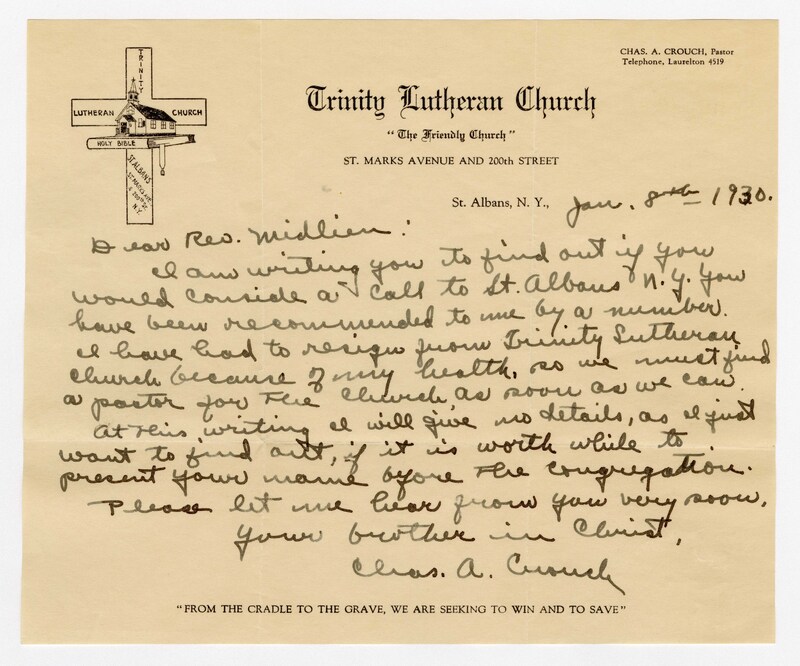 CHAS. A. CROUCH, Pastor
Telephone, Laurelton 4519
TRINITY
LUTHERAN CHURCH
HOLY BIBLE
ST. ALBANS
ST. MARKS AVE
& 200TH ST.
N.Y.
Trinity Lutheran Church
"The Friendly Church"
ST. MARKS AVENUE AND 200th STREET
St. Albans, N. Y., Jan. 8th 1930.
Dear Rev. Midlien:
I am writing you to find out if you
would conside a call to St. Albans N.Y. You
have been recommended to me by a number.
I have had to resign from Trinity Lutheran
Church because of my health, so we must find
a pastor for the Church as soon as we can.
At this writing I will give no details, as I just
want to find out, if it is worth while to
present your name before the congregation.
Please let me hear from you very soon.
Your brother in Christ,
Chas. A. Crouch
"FROM THE CRADLE TO THE GRAVE, WE ARE SEEKING TO WIN AND TO SAVE"